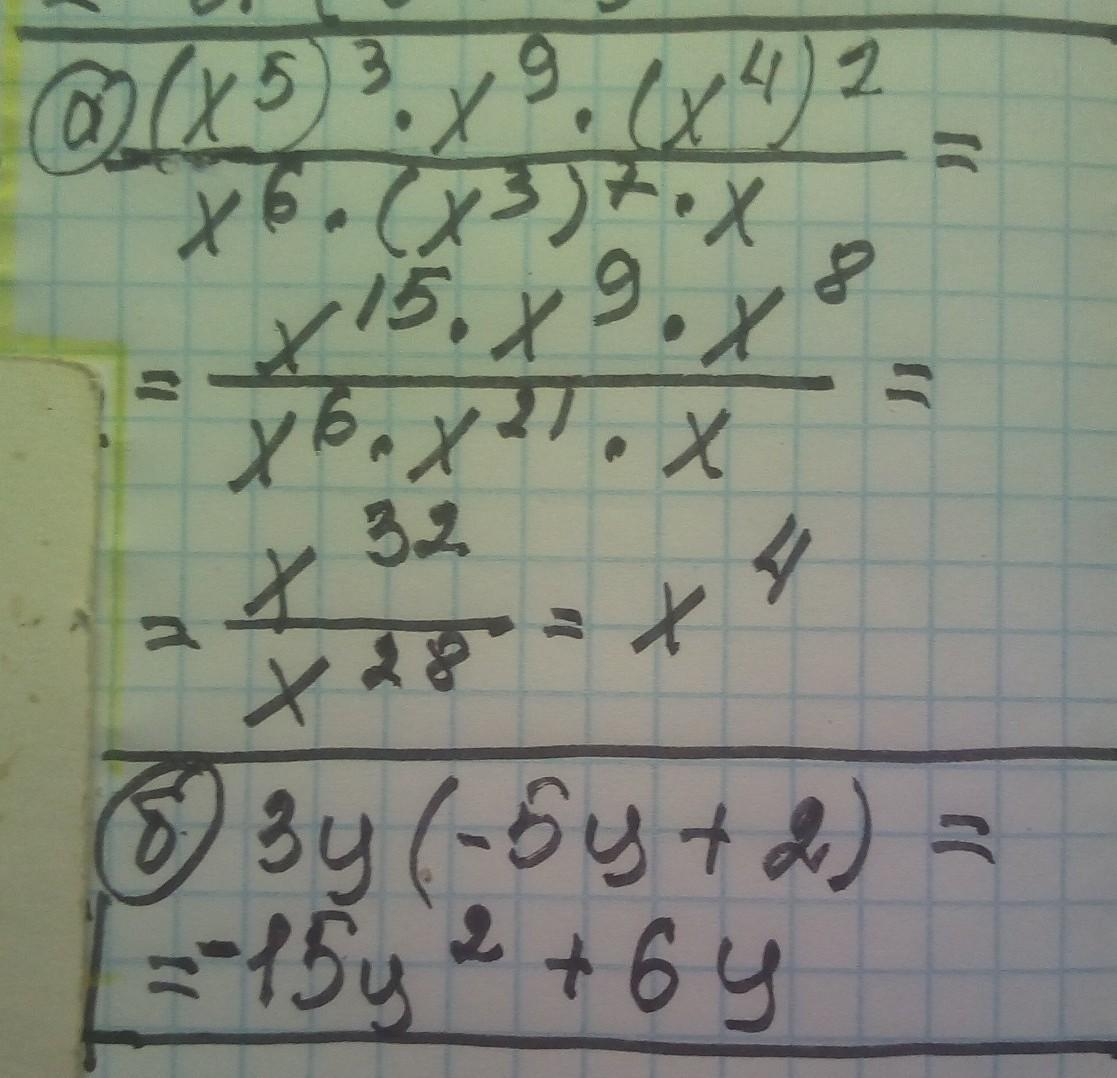 а) (x⁵)³ · x⁹ · (x⁴)² / x⁶ · (x³)⁷ · x =
= x¹⁵ · x⁹ · x⁸ / x⁶ · x²¹ · x =
= x³² / x²⁸ = x⁴
б) 3y(-5y + 2) =
= -15y² + 6y